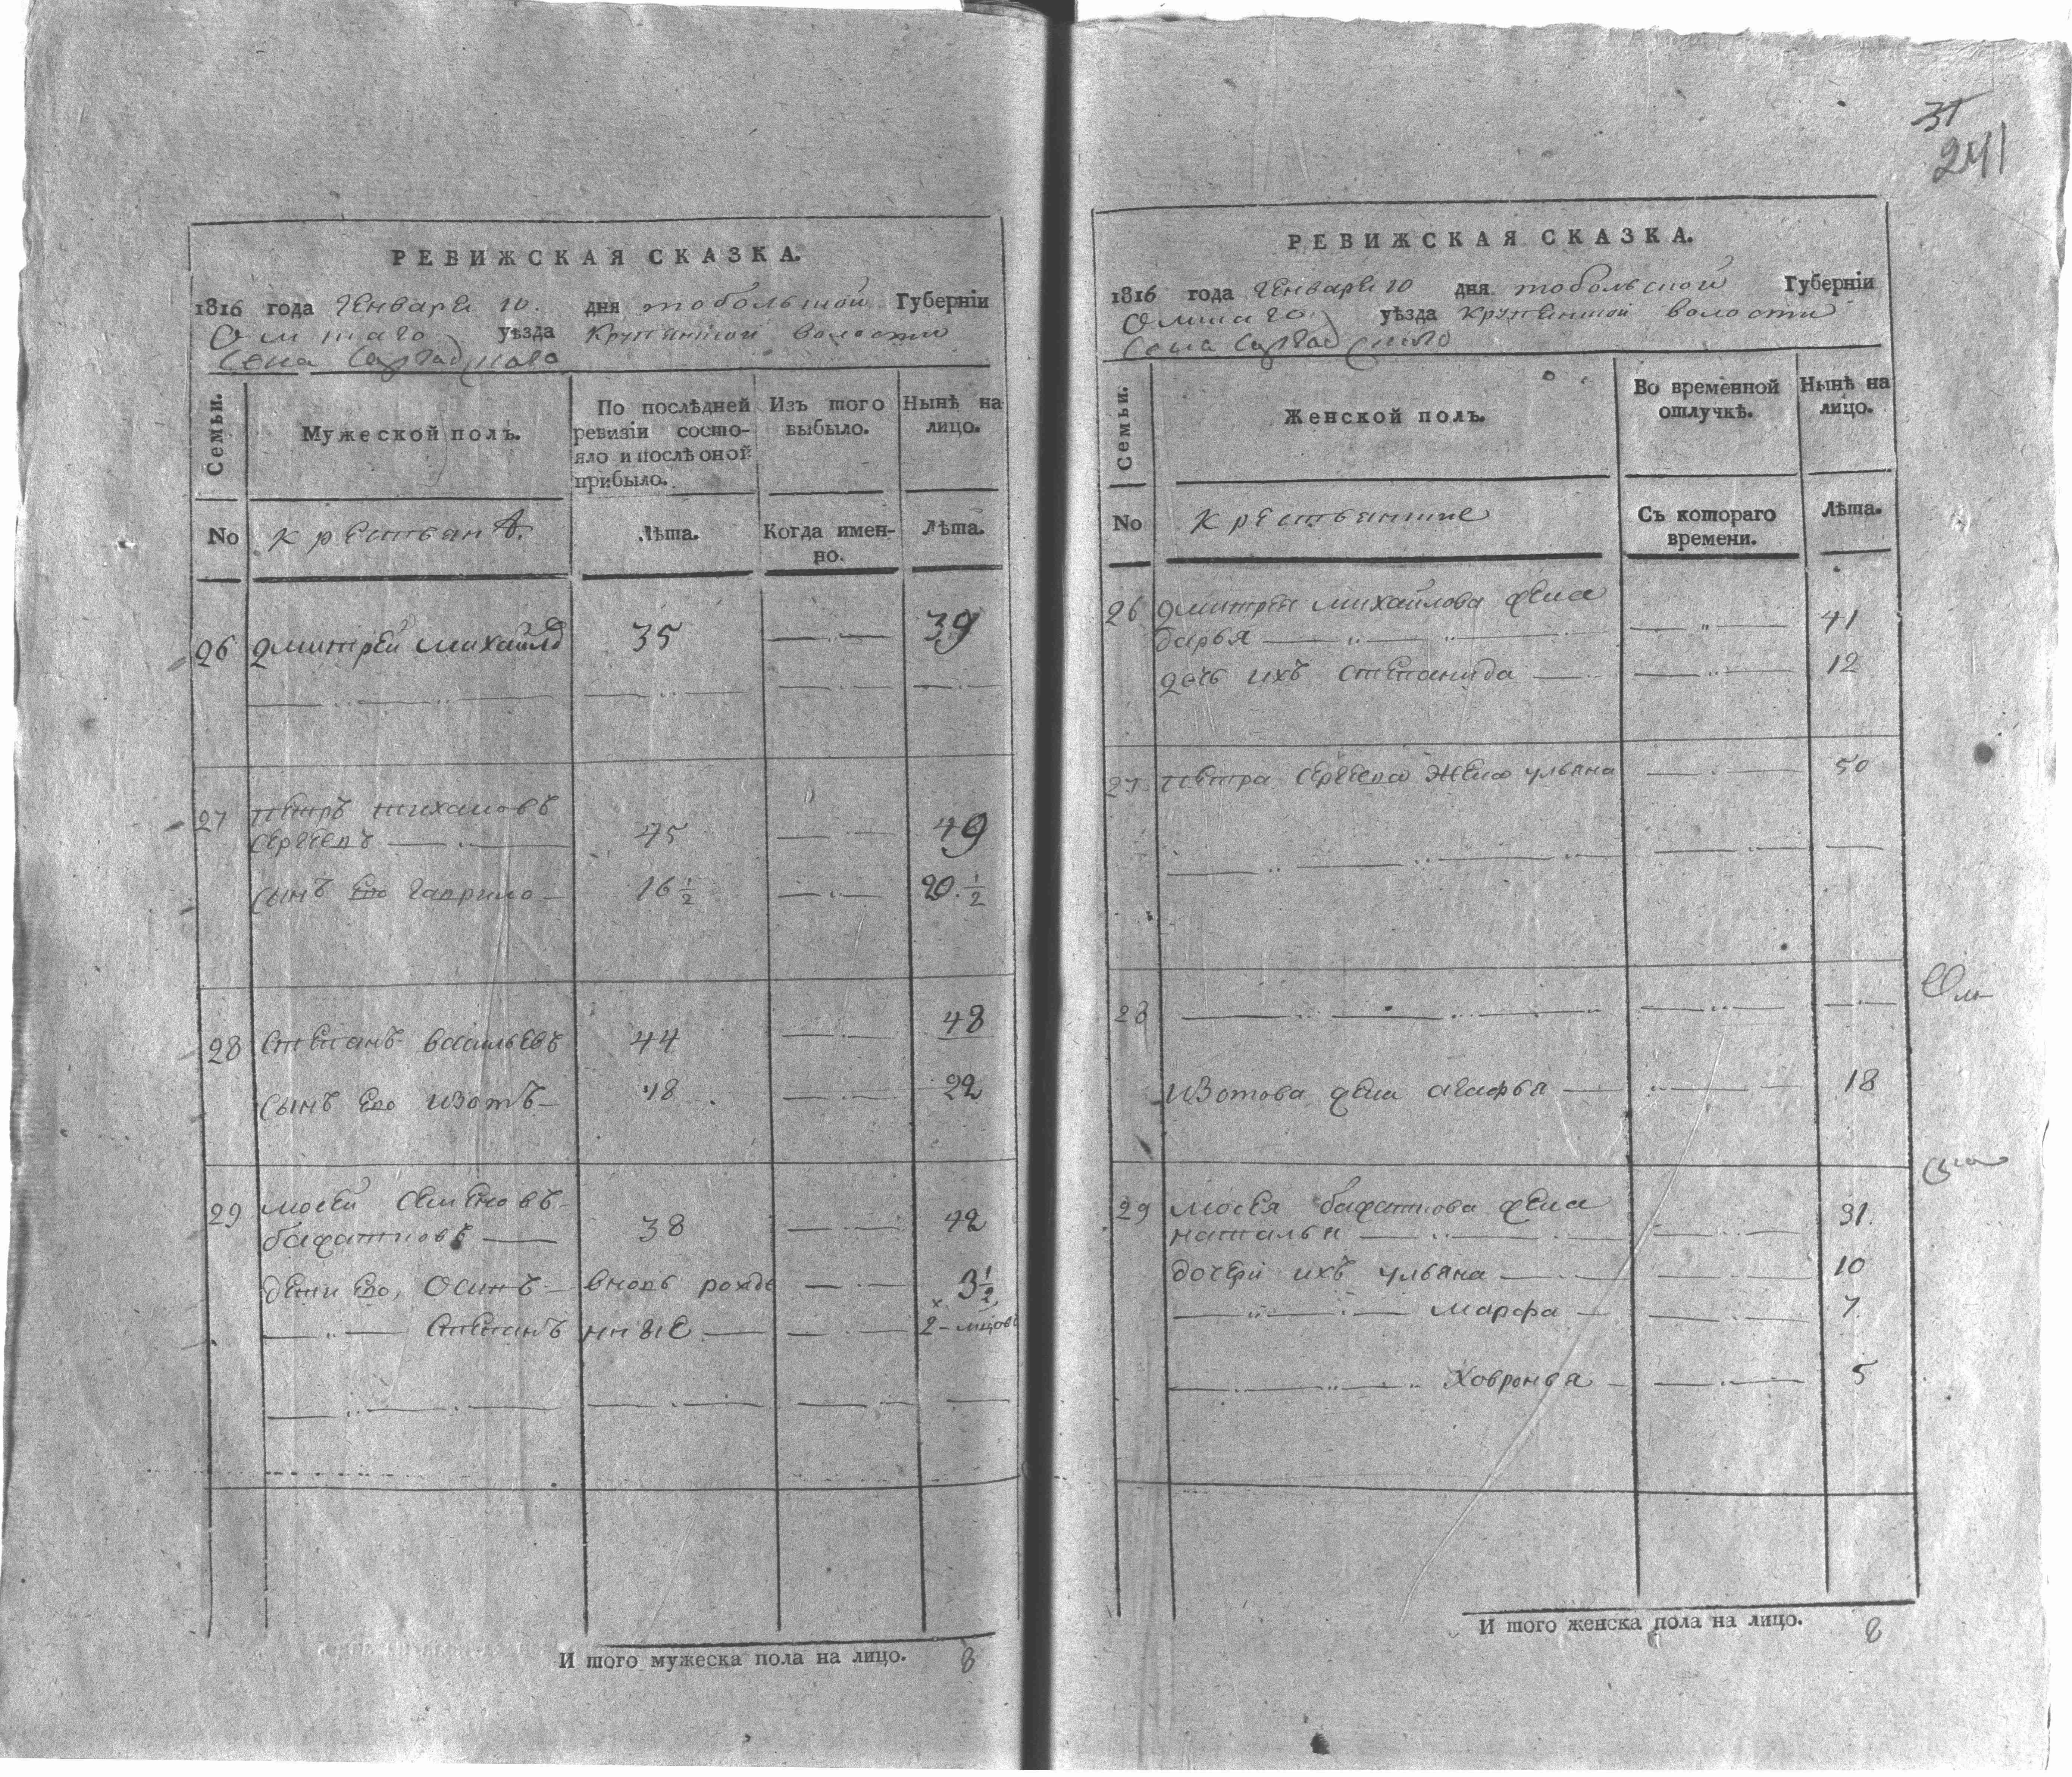 31
241
РЕВИЖСКАЯ СКАЗКА.
1816 года Генваря 10. дня тобольской Губерніи
Омшаго уѣзда Крупянской волости
Села Саргадскаго
Семьи.
Мужеской полъ.
По послѣдней ревизіи состо-
яло и послѣ оной прибыло.
Изъ того выбыло.
Нынѣ на лицо.
No
крестьянѣ.
Лѣта.
Когда имен-
но.
Лѣта.
26 Дмитрей михайло 35 39
27 петръ тихановъ
сергеевъ 45 49
сынъ Его гаврило 16 1/2 20. 1/2
28 степанъ васильевъ 44 48
сынъ Его изотъ 18 22
29 мосей семеновъ
38 42
дети Его, Осипъ вновь рожде 3 1/2
степанъ нные 2-
И того мужеска пола на лицо. 8
РЕВИЖСКАЯ СКАЗКА.
1816 года Генваря 10 дня тобольской Губерніи
Омшаго уѣзда крупенской волости
Села Саргадскаго
Семьи.
Женской полъ.
Во временной отлучкѣ.
Нынѣ на лицо.
No
крестьянские
Съ котораго
времени.
Лѣта.
26 Дмитрея михайлова жена
дарья 41
дочь ихъ степанида 12
27 петра сергеева жена ульяна 50
28
изотова жена агафья 18
29 мосея жена
наталья 31.
дочери ихъ ульяна 10
марфа 7
Ховронья 5
И того женска пола на лицо. 8